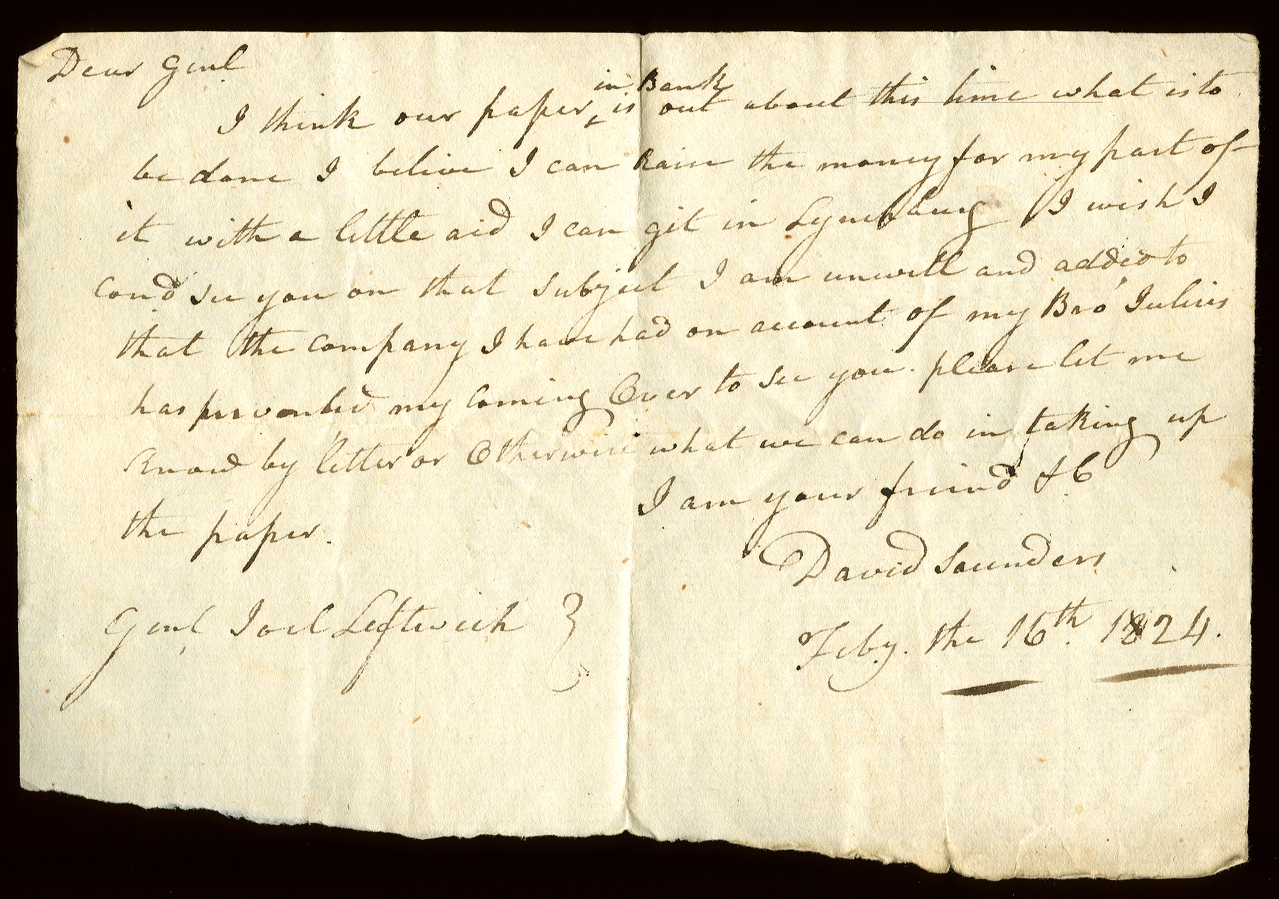 Dear Genl
I think our paper in Bank is out about this time what is to
be done I belive I can Raise the money for my part of
it with a little aid I can git in Lynchburg I wish I
coud see you on that subject I am unwell and added to
that the company I have had on account of my Bro Julius
has prevented my Coming Over to see you. please let me
know by letter or Otherwise what we can do in taking up
the paper.
I am your friend &C
David Saunders
Genl Joel Leftwich
Feby. the 16th. 1824.